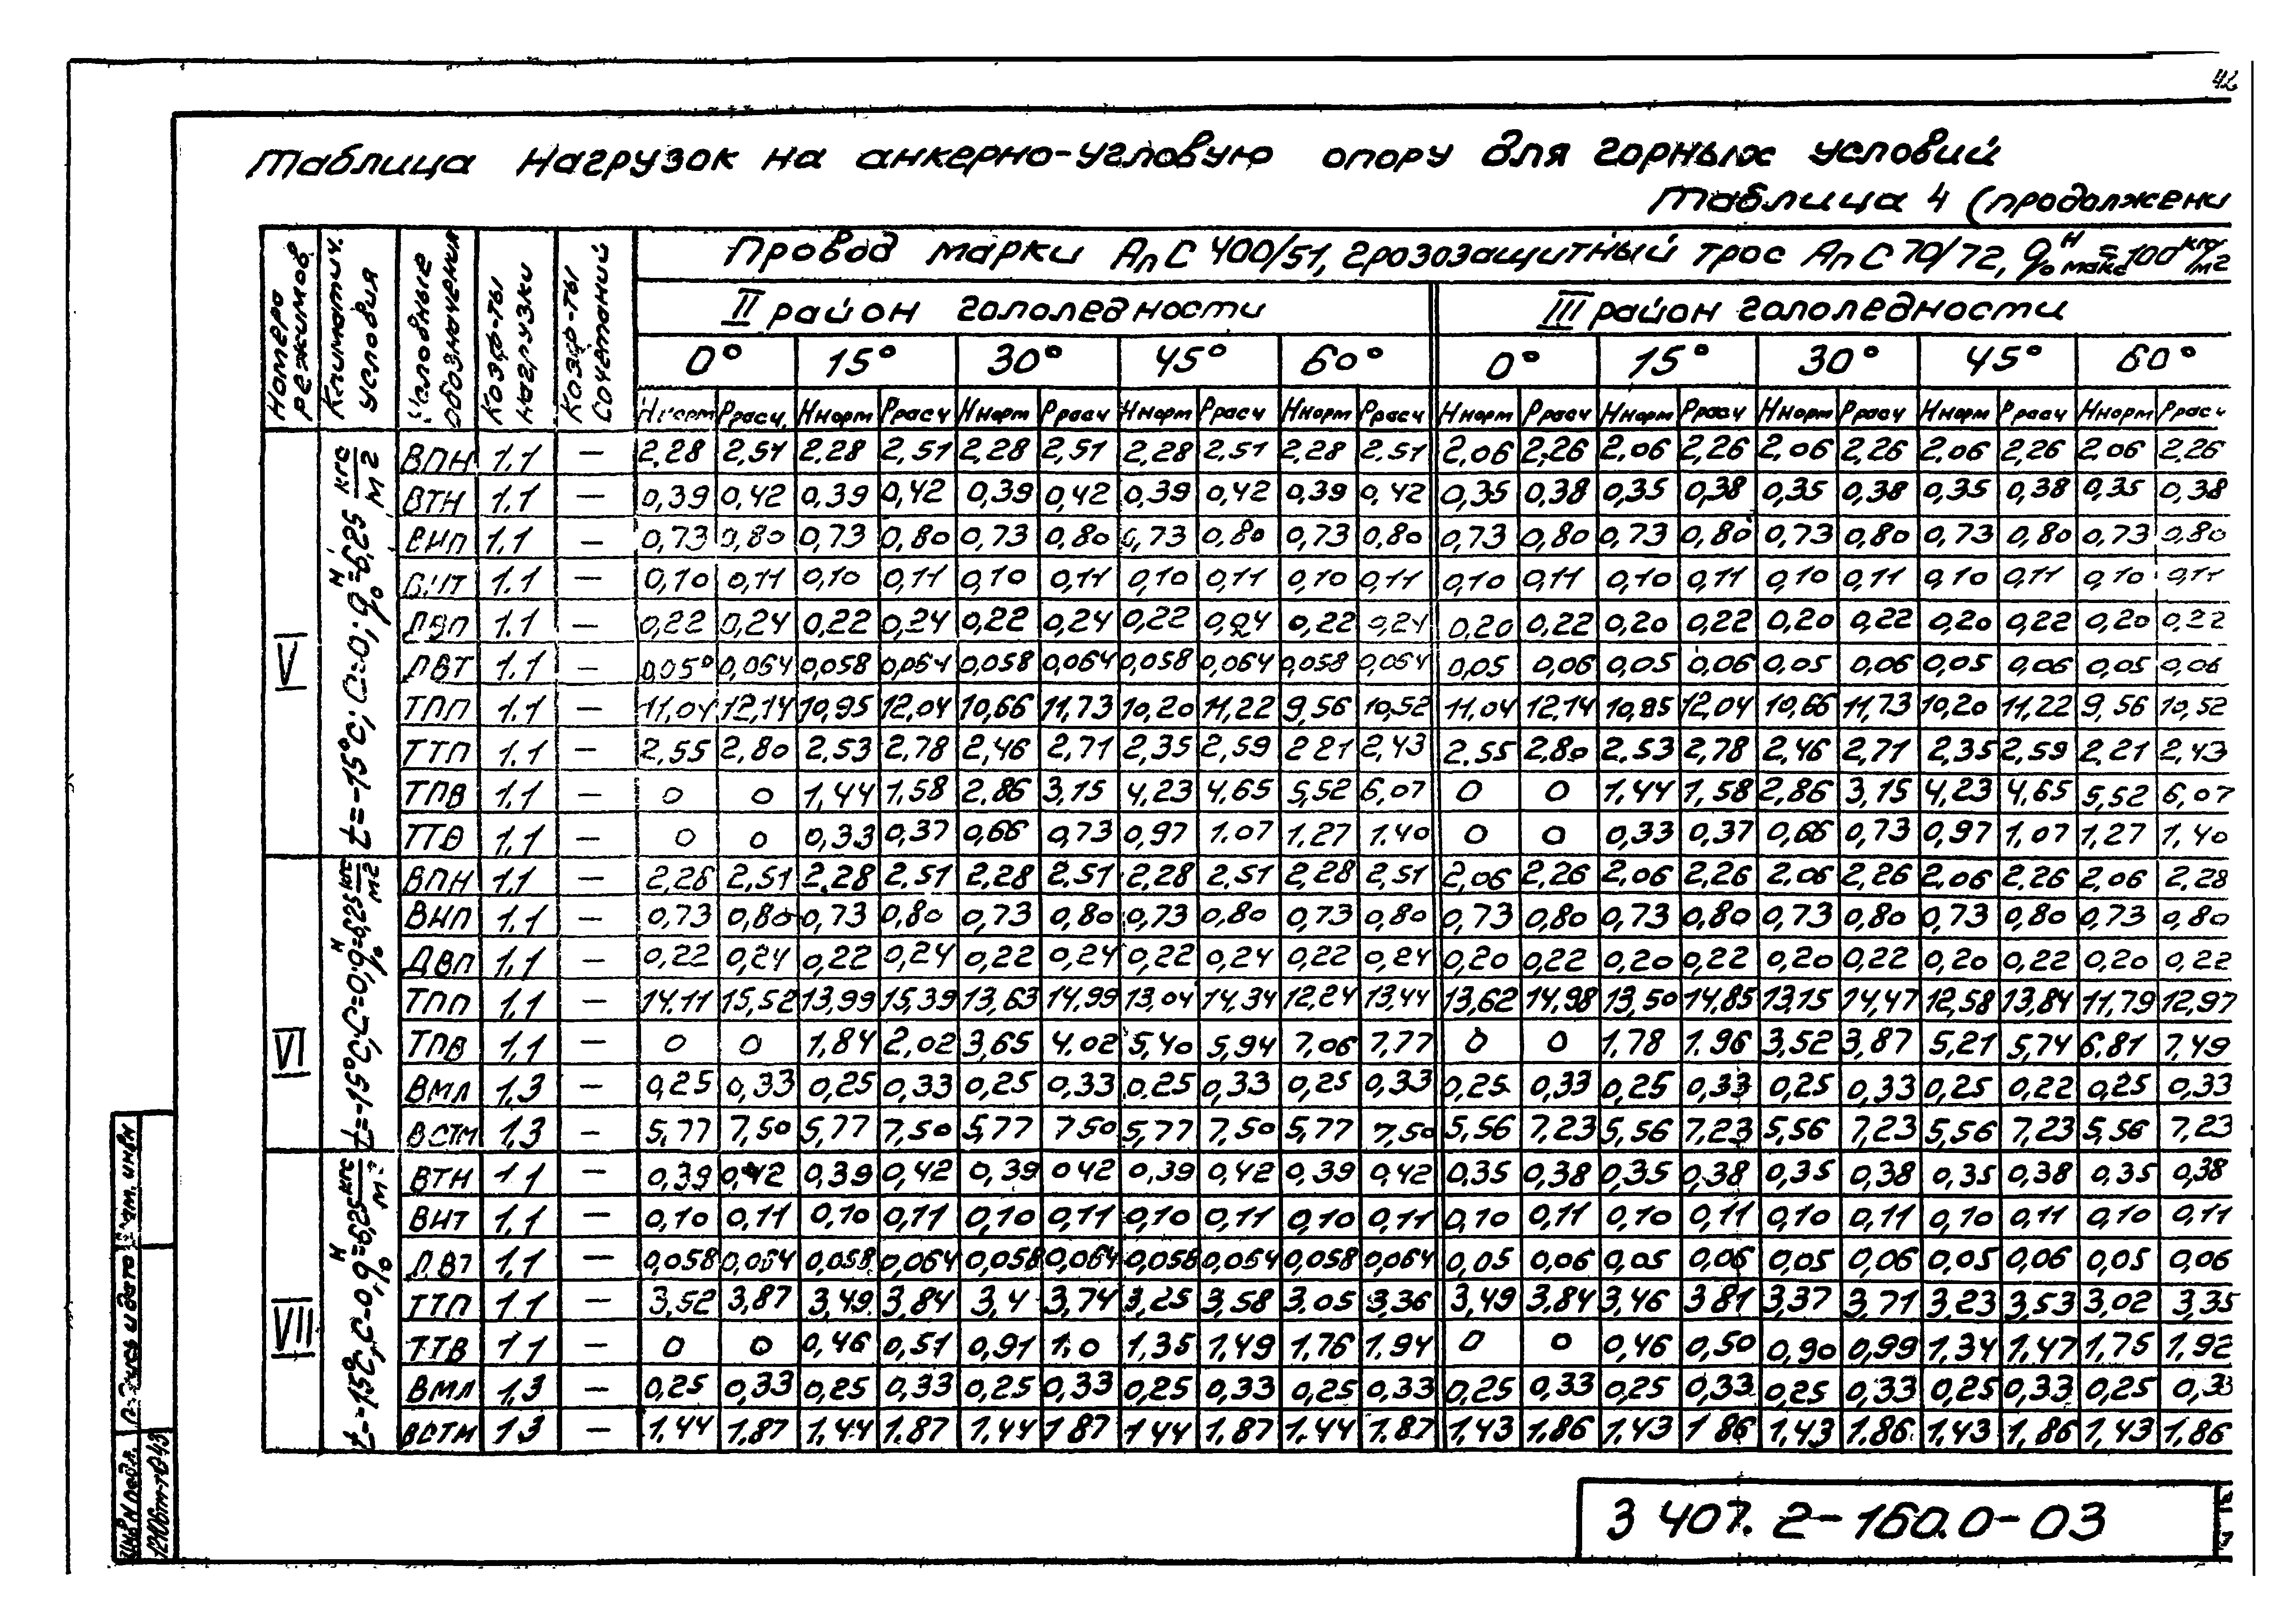 42
Таблица нагрузок на анкерно-угловую опору для горных условий
Таблица 4 (продолжени
Номера режимов
Климатич. условия
Условные обозначения
Коэф-ты нагрузки
Коэф-ты сочетаний
Провод марки АпС 400/51, грозозащитный трос АпС 70/72, q₀ᴴ макс = 100 кгс/м2
II район гололедности III район гололедности
0° 15° 30° 45° 60° 0° 15° 30° 45° 60°
Ннорм Ррасч. Ннорм Ррасч Ннорм Ррасч Ннорм Ррасч Ннорм Ррасч Ннорм Ррасч Ннорм Ррасч Ннорм Ррасч Ннорм Ррасч Ннорм Ррасч
V
t=-15°С, С=0, q₀ᴴ=6,25 кгс/м2
ВПН 1.1 — 2,28 2,51 2,28 2,51 2,28 2,51 2,28 2,51 2,28 2.51 2,06 2,26 2,06 2,26 2,06 2,26 2,06 2,26 2,06 2,26
ВТН 1.1 — 0,39 0,42 0,39 0,42 0,39 0,42 0,39 0,42 0,39 0,42 0,35 0,38 0,35 0,38 0,35 0,38 0,35 0,38 0,35 0,38
ВНП 1.1 — 0,73 0,80 0,73 0,80 0,73 0,80 0,73 0,80 0,73 0,80 0,73 0,80 0,73 0,80 0,73 0,80 0,73 0,80 0,73 0,80
ВНТ 1.1 — 0,10 0,11 0,10 0,11 0,10 0,11 0,10 0,11 0,10 0,11 0,10 0,11 0,10 0,11 0,10 0,11 0,10 0,11 0,10 0,11
ДВП 1.1 — 0,22 0,24 0,22 0,24 0,22 0,24 0,22 0,24 0,22 0,24 0,20 0,22 0,20 0,22 0,20 0,22 0,20 0,22 0,20 0,22
ДВТ 1.1 — 0,058 0,064 0,058 0,064 0,058 0,064 0,058 0,064 0,058 0,064 0,05 0,06 0,05 0,06 0,05 0,06 0,05 0,06 0,05 0,06
ТПП 1.1 — 11,04 12,14 10,95 12,04 10,66 11,73 10,20 11,22 9,56 10,52 11,04 12,14 10,95 12,04 10,66 11,73 10,20 11,22 9,56 10,52
ТТП 1.1 — 2.55 2,80 2,53 2,78 2,46 2,71 2,35 2,59 2 21 2,43 2.55 2,80 2,53 2,78 2,46 2,71 2,35 2,59 2,21 2,43
ТПВ 1.1 — 0 0 1,44 1,58 2,86 3,15 4,23 4,65 5,52 6,07 0 0 1,44 1,58 2,86 3,15 4,23 4,65 5,52 6,07
ТТВ 1.1 — 0 0 0,33 0,37 0,66 0,73 0,97 1.07 1,27 1.40 0 0 0,33 0,37 0,66 0,73 0,97 1,07 1,27 1,40
VI
t=-15°С, С=0, q₀ᴴ=6,25 кгс/м2
ВПН 1.1 — 2,28 2,51 2,28 2,51 2,28 2,51 2,28 2,51 2,28 2,51 2,06 2,26 2,06 2,26 2,06 2,26 2,06 2,26 2,06 2,28
ВНП 1.1 — 0,73 0,80 0,73 0,80 0,73 0,80 0,73 0,80 0,73 0,80 0,73 0,80 0,73 0,80 0,73 0,80 0,73 0,80 0,73 0,80
ДВП 1.1 — 0,22 0,24 0,22 0,24 0,22 0,24 0,22 0,24 0,22 0,24 0,20 0,22 0,20 0,22 0,20 0,22 0,20 0,22 0,20 0,22
ТПП 1.1 — 14,11 15,52 13,99 15,39 13,63 14,99 13,04 14,34 12,24 13,44 13,62 14,98 13,50 14,85 13,15 14,47 12,58 13,84 11,79 12,97
ТПВ 1.1 — 0 0 1,84 2,02 3,65 4.02 5,40 5,94 7,06 7,77 0 0 1,78 1.96 3,52 3,87 5,21 5,74 6.81 7,49
ВМЛ 1,3 — 0,25 0,33 0,25 0,33 0,25 0,33 0,25 0,33 0,25 0,33 0,25 0,33 0,25 0,33 0,25 0,33 0,25 0,22 0,25 0,33
ВСТМ 1,3 — 5,77 7,50 5,77 7,50 5,77 7 50 5,77 7,50 5,77 7,50 5,56 7,23 5,56 7,23 5,56 7,23 5,56 7,23 5,56 7,23
VII
t=-15°С, С=0, q₀ᴴ=6,25 кгс/м2
ВТН 1 1 — 0,39 0,42 0,39 0,42 0,39 0 42 0,39 0,42 0,39 0,42 0,35 0,38 0,35 0,38 0,35 0,38 0,35 0,38 0,35 0,38
ВНТ 1,1 — 0,10 0,11 0,10 0,11 0,10 0,11 0,10 0,11 0,10 0,11 0,10 0,11 0,10 0,11 0,10 0,11 0,10 0,11 0,10 0,11
ДВТ 1,1 — 0,058 0,064 0,058 0,064 0,058 0,064 0,058 0,064 0,058 0,064 0,05 0,06 0,05 0,06 0,05 0,06 0,05 0,06 0,05 0,06
ТТП 1 1 — 3,52 3,87 3,49 3,84 3,4 3,74 3,25 3,58 3,05 3,36 3,49 3,84 3,46 3 81 3,37 3,71 3,23 3,53 3,02 3,35
ТТВ 1 1 — 0 0 0,46 0,51 0,91 1.0 1,35 1,49 1,76 1.94 0 0 0,46 0,50 0,90 0,99 1,34 1,47 1,75 1,92
ВМЛ 1,3 — 0,25 0,33 0,25 0,33 0,25 0,33 0,25 0,33 0,25 0,33 0,25 0,33 0,25 0,33 0,25 0,33 0,25 0,33 0,25 0,33
ВСТМ 1.3 — 1,44 1,87 1,44 1.87 1,44 1 87 1 44 1,87 1,44 1.87 1,43 1,86 1,43 1 86 1,43 1.86 1,43 1,86 1,43 1,86
3 407. 2-160.0-03
Инв N подл.